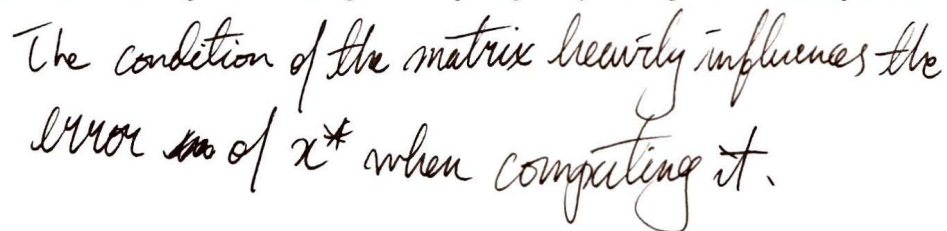 The condition of the matrix heavily influences the
error of x* when computing it.